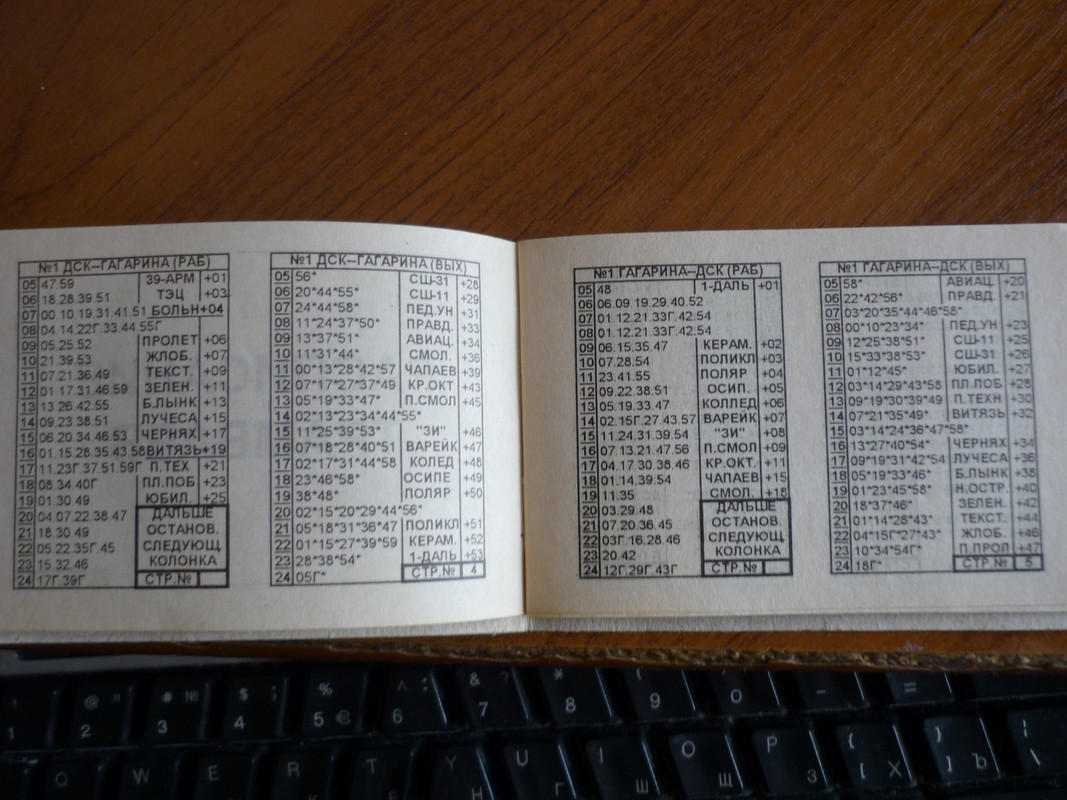 №1 ДСК–ГАГАРИНА (РАБ)
05 47.59 39-АРМ +01
06 18.28.39.51 ТЭЦ +03
07 00.10.19.31.41.51 БОЛЬН +04
08 04.14.22Г.33.44.55Г
09 05.25.52 ПРОЛЕТ +06
10 21.39.53 ЖЛОБ. +07
11 07.21.36.49 ТЕКСТ. +09
12 01.17.31.46.59 ЗЕЛЕН. +11
13 13.26.42.55 Б.ЛЫНК +13
14 09.23.38.51 ЛУЧЕСА +15
15 06.20.34.46.53 ЧЕРНЯХ +17
16 01.15.28.35.43.58 ВИТЯЗЬ +19
17 11.23Г.37.51.59Г П.ТЕХ +21
18 08.34.40Г ПЛ.ПОБ +23
19 01.30.49 ЮБИЛ. +25
20 04.07.22.38.47 ДАЛЬШЕ
21 18.30.49 ОСТАНОВ.
22 05.22.35Г.45 СЛЕДУЮЩ.
23 15.32.46 КОЛОНКА
24 17Г.39Г СТР.№
№1 ДСК–ГАГАРИНА (ВЫХ)
05 56* СШ-31 +28
06 20*44*55* СШ-11 +29
07 24*44*58* ПЕД.УН +31
08 11*24*37*50* ПРАВД. +33
09 13*37*51* АВИАЦ. +34
10 11*31*44* СМОЛ. +36
11 00*13*28*42*57 ЧАПАЕВ +39
12 07*17*27*37*49 КР.ОКТ +43
13 05*19*33*47* П.СМОЛ +45
14 02*13*23*34*44*55*
15 11*25*39*53* "ЗИ" +46
16 07*18*28*40*51 ВАРЕЙК +47
17 02*17*31*44*58 КОЛЕД +48
18 23*46*58* ОСИПЕ +49
19 38*48* ПОЛЯР +50
20 02*15*20*29*44*56*
21 05*18*31*36*47 ПОЛИКЛ +51
22 01*15*27*39*59 КЕРАМ. +52
23 28*38*54* 1-ДАЛЬ +53
24 05Г* СТР.№ 4
№1 ГАГАРИНА–ДСК (РАБ)
05 48 1-ДАЛЬ +01
06 06.09.19.29.40.52
07 01.12.21.33Г.42.54
08 01.12.21.33Г.42.54
09 06.15.35.47 КЕРАМ. +02
10 07.28.54 ПОЛИКЛ +03
11 23.41.55 ПОЛЯР +04
12 09.22.38.51 ОСИП. +05
13 05.19.33.47 КОЛЛЕД +06
14 02.15Г.27.43.57 ВАРЕЙК +07
15 11.24.31.39.54 "ЗИ" +08
16 07.13.21.47.56 П.СМОЛ +09
17 04.17.30.38.46 КР.ОКТ. +11
18 01.14.39.54 ЧАПАЕВ +15
19 11.35 СМОЛ. +18
20 03.29.48 ДАЛЬШЕ
21 07.20.36.45 ОСТАНОВ.
22 03Г.16.28.46 СЛЕДУЮЩ.
23 20.42 КОЛОНКА
24 12Г.29Г.43Г СТР.№
№1 ГАГАРИНА–ДСК (ВЫХ)
05 58* АВИАЦ. +20
06 22*42*56* ПРАВД. +21
07 03*20*35*44*46*58*
08 00*10*23*34* ПЕД.УН +23
09 12*25*38*51* СШ-11 +25
10 15*33*38*53* СШ-31 +26
11 01*12*45* ЮБИЛ. +27
12 03*14*29*43*58 ПЛ.ПОБ +28
13 09*19*30*39*49 П.ТЕХН +30
14 07*21*35*49* ВИТЯЗЬ +32
15 03*14*24*36*47*58*
16 13*27*40*54* ЧЕРНЯХ +34
17 09*19*31*42*54 ЛУЧЕСА +36
18 05*19*33*46* Б.ЛЫНК +38
19 01*23*45*58* Н.ОСТР. +40
20 18*37*46* ЗЕЛЕН. +42
21 01*14*28*43* ТЕКСТ. +44
22 04*15Г*27*43* ЖЛОБ. +46
23 10*34*54Г* П.ПРОЛ +47
24 18Г* СТР.№ 5
1 2 3 № 4 $ ; 5 % € 6 ^ : 7 & ? 8 * 9 ( 0 ) – =
Q W E R T Y Н U Г I Ш O Щ P З { [ Х } ] Ъ